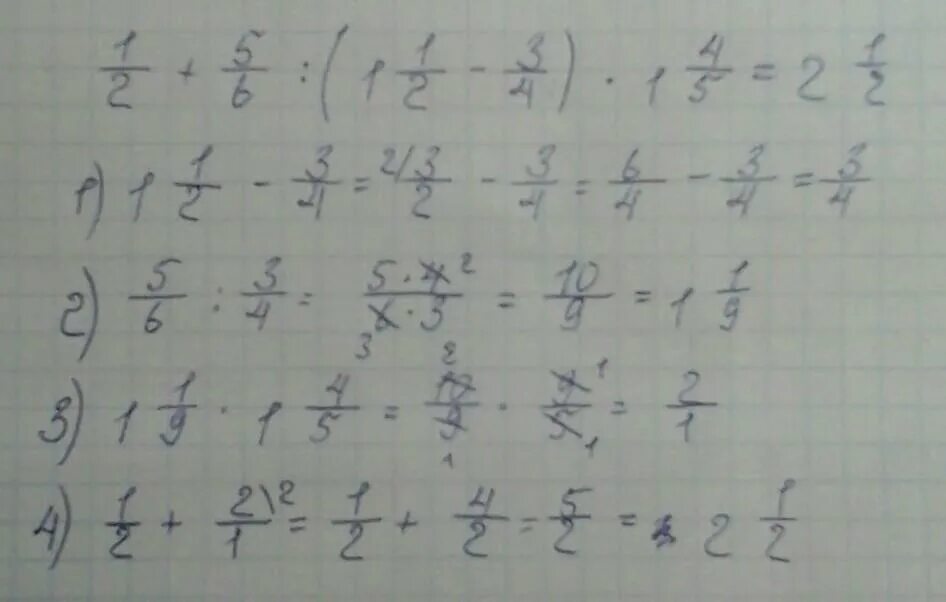 1/2 + 5/6 : (1 1/2 - 3/4) · 1 4/5 = 2 1/2
1) 1 1/2 - 3/4 = 2/ 3/2 - 3/4 = 6/4 - 3/4 = 3/4
2) 5/6 : 3/4 = 5·4 2/6·3 3 = 10/9 = 1 1/9
3) 1 1/9 · 1 4/5 = 10 2/9 1 · 9 1/5 1 = 2/1
4) 1/2 + 2\2/1 = 1/2 + 4/2 = 5/2 = 2 1/2